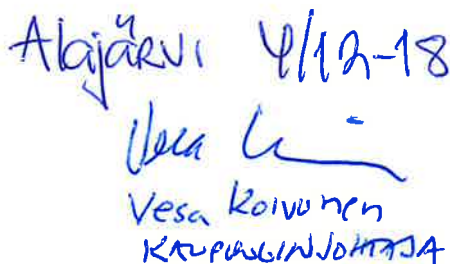 Alajärvi 4/12-18
Vesa K
Vesa Koivunen
KAUPUNGINJOHTAJA